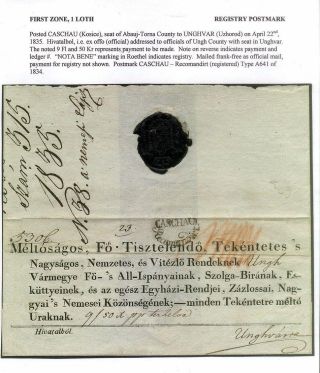 FIRST ZONE, 1 LOTH
REGISTRY POSTMARK
Posted CASCHAU (Kosice), seat of Abauj-Torna County to UNGHVAR (Uzhorod) on April 22nd,
1835. Hivatalból, i.e. ex offo (official) addressed to officials of Ungh County with seat in Unghvar.
The noted 9 Fl and 50 Kr represents payment to be made. Note on reverse indicates payment and
ledger #. "NOTA BENE" marking in Roethel indicates registry. Mailed frank-free as official mail,
payment for registry not shown. Postmark CASCHAU – Recomandirt (registered) Type A641 of
1834.
1835.
CASCHAU
23.
Méltóságos, Fő-Tisztelendő, Tekéntetes 's
Nagyságos, Nemzetes, és Vitézlő Rendeknek Ungh
Vármegye Fő-'s All-Ispányainak, Szolga-Birának, Es-
küttyeinek, és az egész Egyházi-Rendjei, Zázlossai, Nag-
gyai's Nemesei Közönségének;—minden Tekéntetre méltó
Uraknak.
9/50
Hivatalból.
Unghvárra